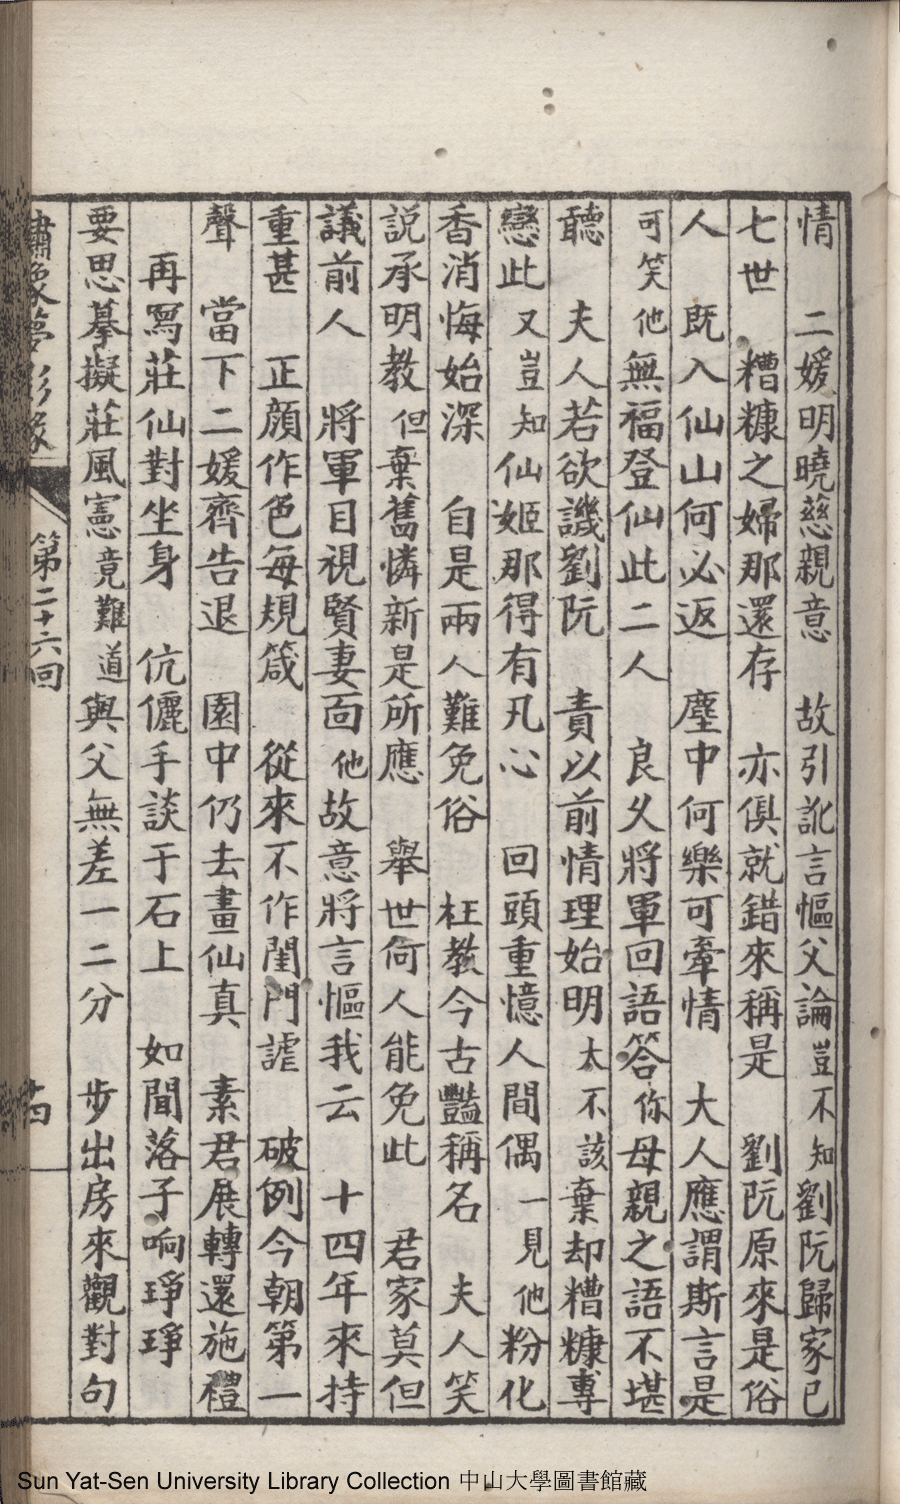 情　二媛明曉慈親意　故引訛言慪父論豈不知劉阮歸家已
七世　糟糠之婦那還存　亦俱就錯來稱是　劉阮原來是俗
人　既入仙山何必返　塵中何樂可牽情　大人應謂斯言是
可笑他無福登仙此二人　良乆將軍回語答你母親之語不堪
聽　夫人若欲譏劉阮　責以前情理始明太不該棄却糟糠專
戀此又豈知仙姬那得有凡心　回頭重憶人間偶一見他粉化
香消悔始深　自是兩人難免俗　枉教今古豔稱名　夫人笑
説承明教但棄舊憐新是所應　舉世何人能免此　君家莫但
議前人　將軍目視賢妻面他故意將言慪我云　十四年來持
重甚　正顔作色每規箴　從來不作閨門謔　破例今朝第一
聲　當下二媛齊告退　園中仍去畫仙真　素君展轉還施禮
再寫莊仙對坐身　伉儷手談于石上　如聞落子响琤琤
要思摹擬莊風憲竟難道與父無差一二分　步出房來觀對句
繡像夢影緣　第二十六回　十四
Sun Yat-Sen University Library Collection 中山大學圖書館藏